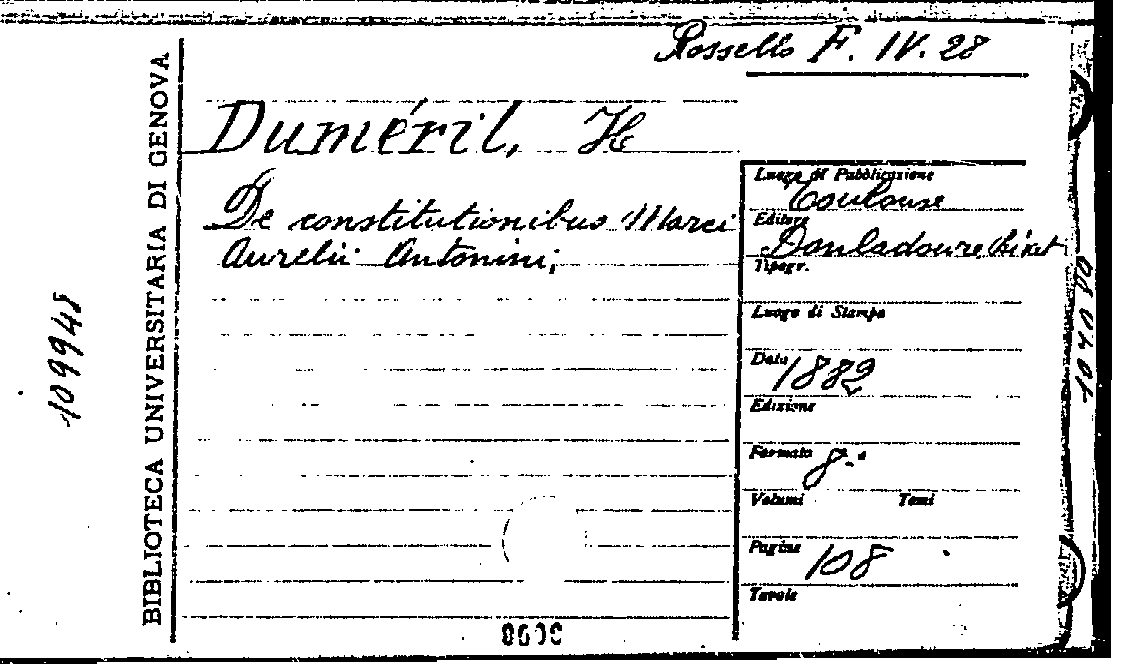 Rossello F. IV. 28
BIBLIOTECA UNIVERSITARIA DI GENOVA
109948
Duméril, H
De constitutionibus Marci
Aurelii Antonini;
Luogo di Pubblicazione
Toulouse
Editore
Douladoure
Tipogr.
Luogo di Stampa
Data 1882
Edizione
Formato 8°
Volumi Tomi
Pagine 108
Tavole